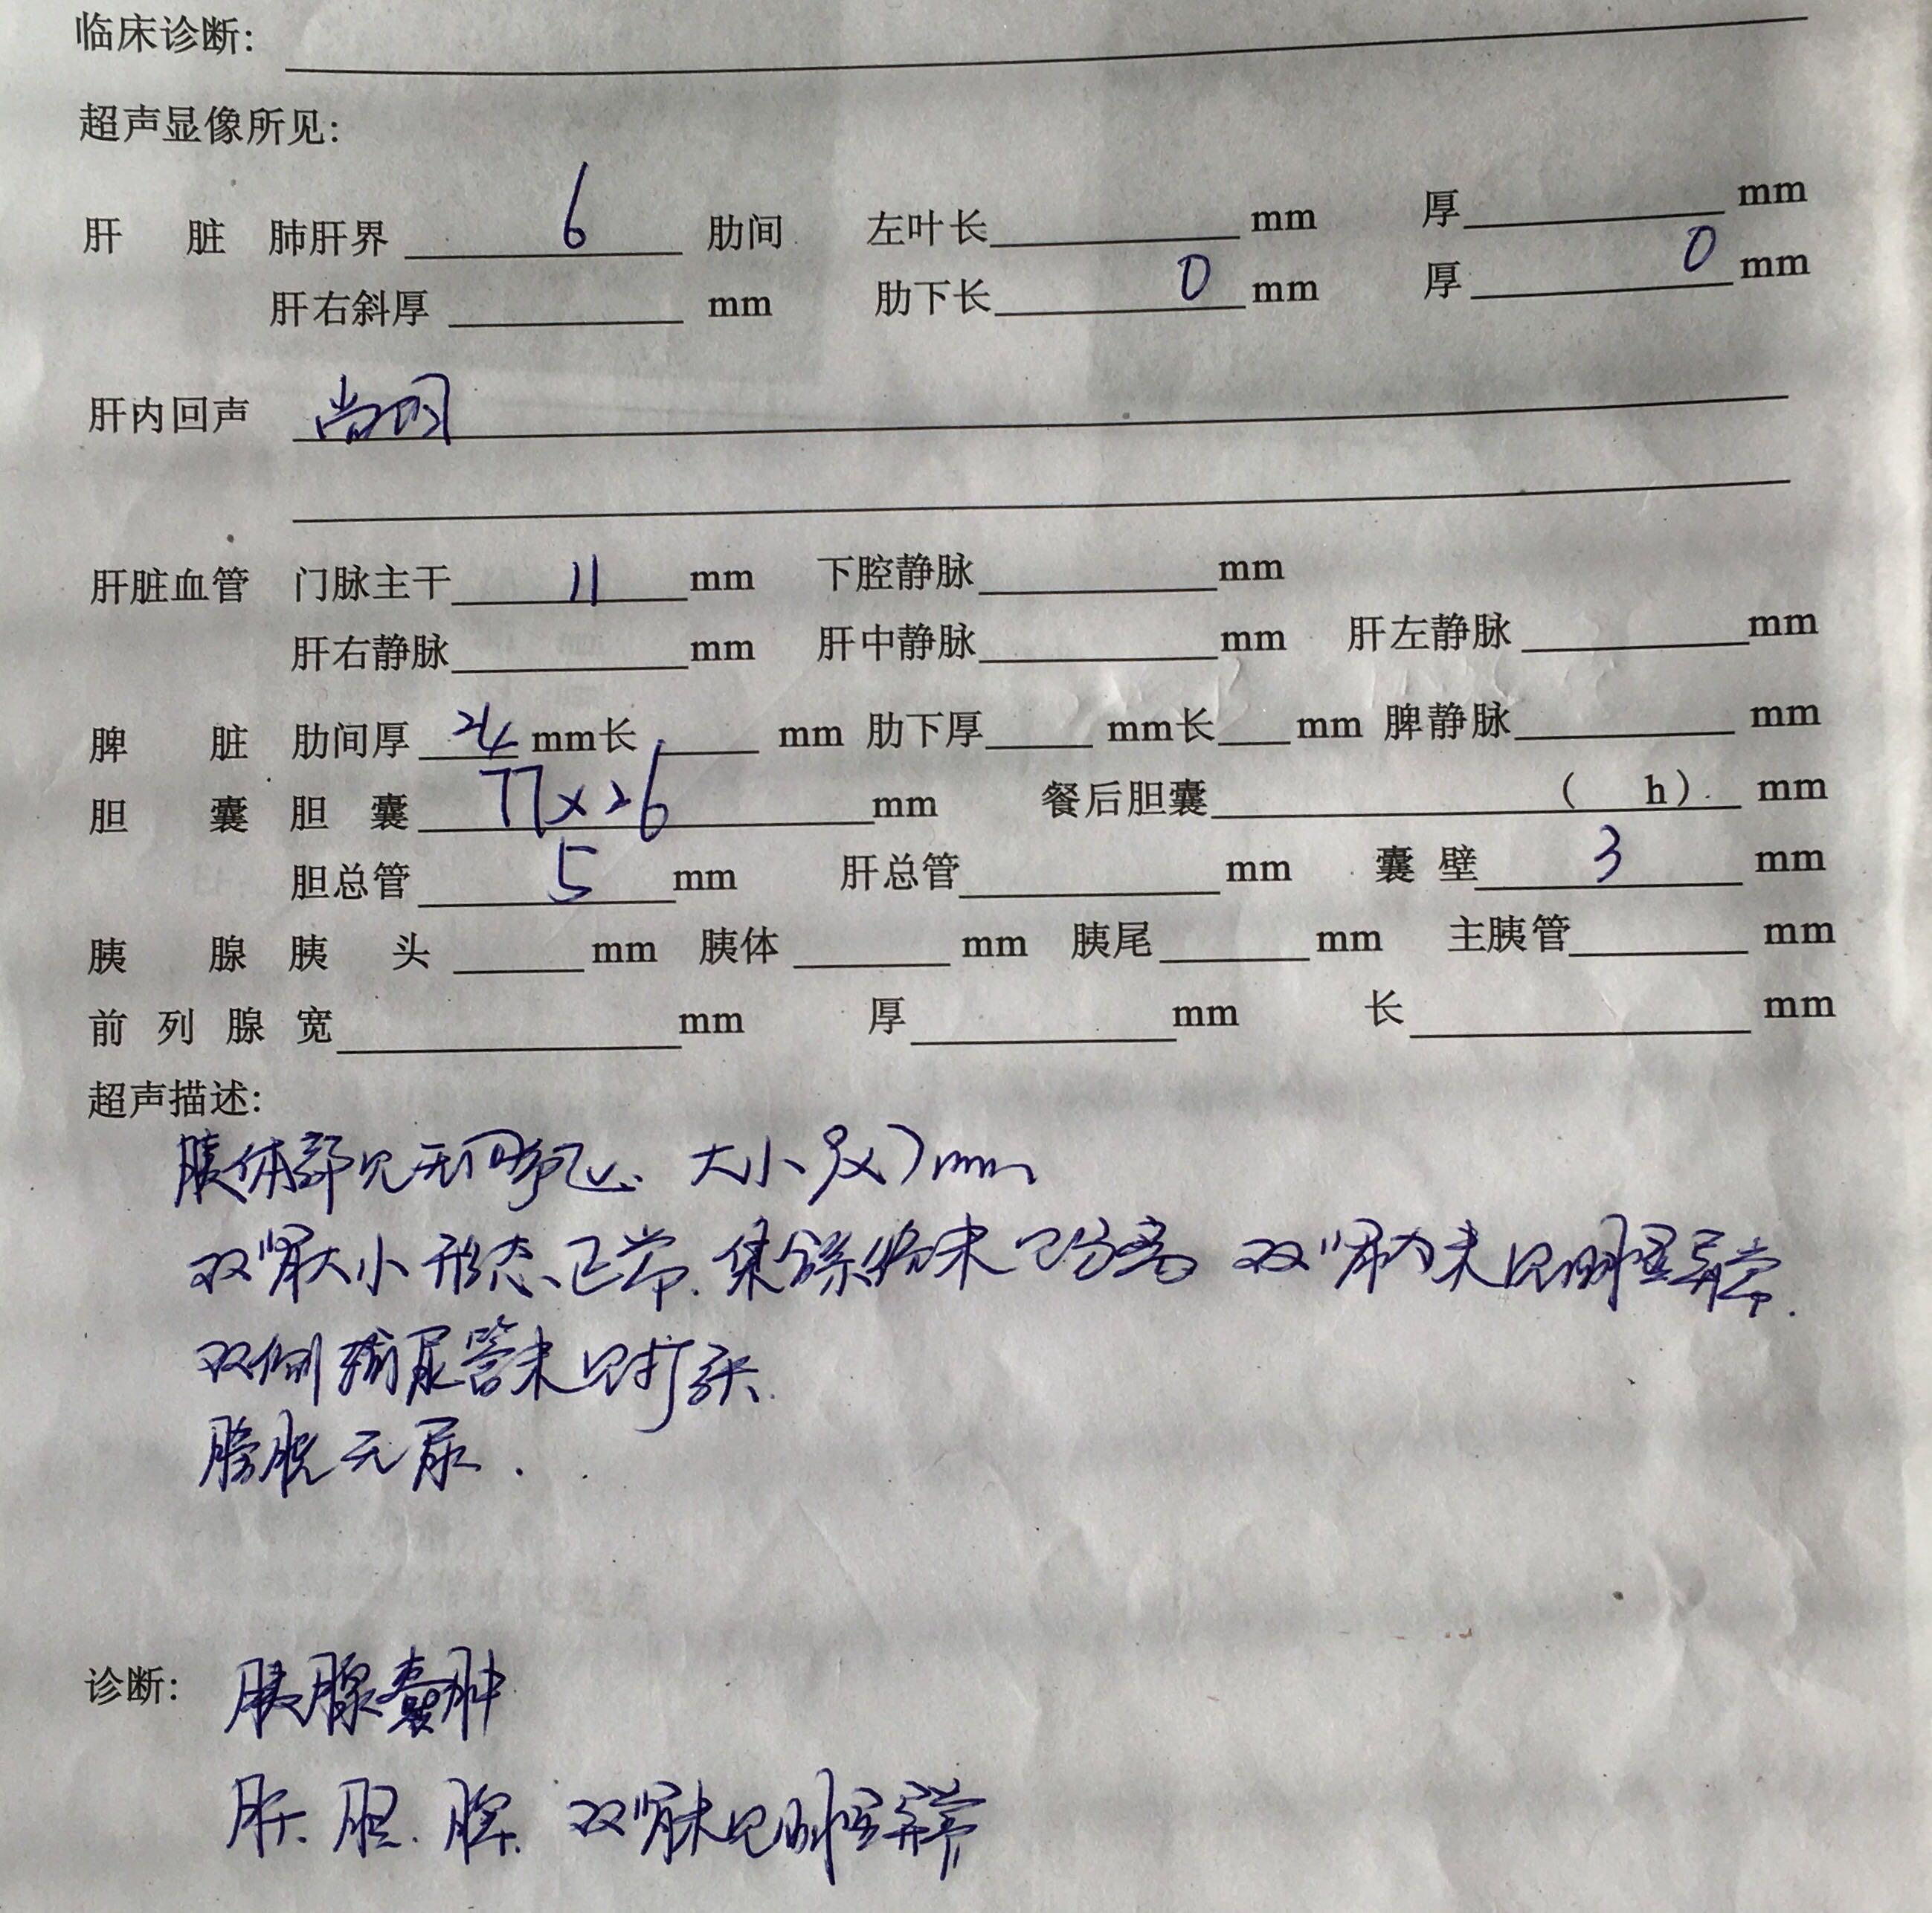 临床诊断:
超声显像所见:
肝 脏 肺肝界 6 肋间 左叶长 mm 厚 mm
肝右斜厚 mm 肋下长 0 mm 厚 0 mm
肝内回声 尚均
肝脏血管 门脉主干 11 mm 下腔静脉 mm
肝右静脉 mm 肝中静脉 mm 肝左静脉 mm
脾 脏 肋间厚 mm长 mm 肋下厚 mm长 mm 脾静脉 mm
胆 囊 胆 囊 77×26 mm 餐后胆囊 ( h) mm
胆总管 5 mm 肝总管 mm 囊 壁 3 mm
胰 腺 胰 头 mm 胰体 mm 胰尾 mm 主胰管 mm
前 列 腺 宽 mm 厚 mm 长 mm
超声描述:
胰体部见无回声区、大小 mm
双肾大小形态正常.集合系统未见分离 双肾内未见明显异常.
双侧输尿管未见扩张.
膀胱无尿.
诊断: 胰腺囊肿
肝.胆.脾.双肾未见明显异常